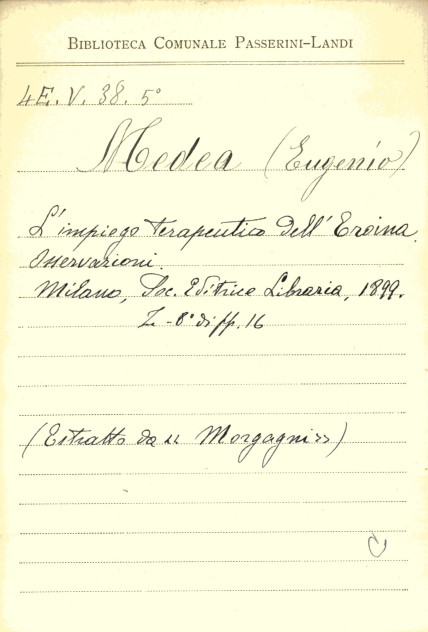 BIBLIOTECA COMUNALE PASSERINI-LANDI
4E. V. 38. 5°
Medea (Eugenio)
L'impiego terapeutico dell'Eroina.
Osservazioni.
Milano, Soc. Editrice Libraria, 1899.
8° di pp. 16
(Estratto da "Morgagni")